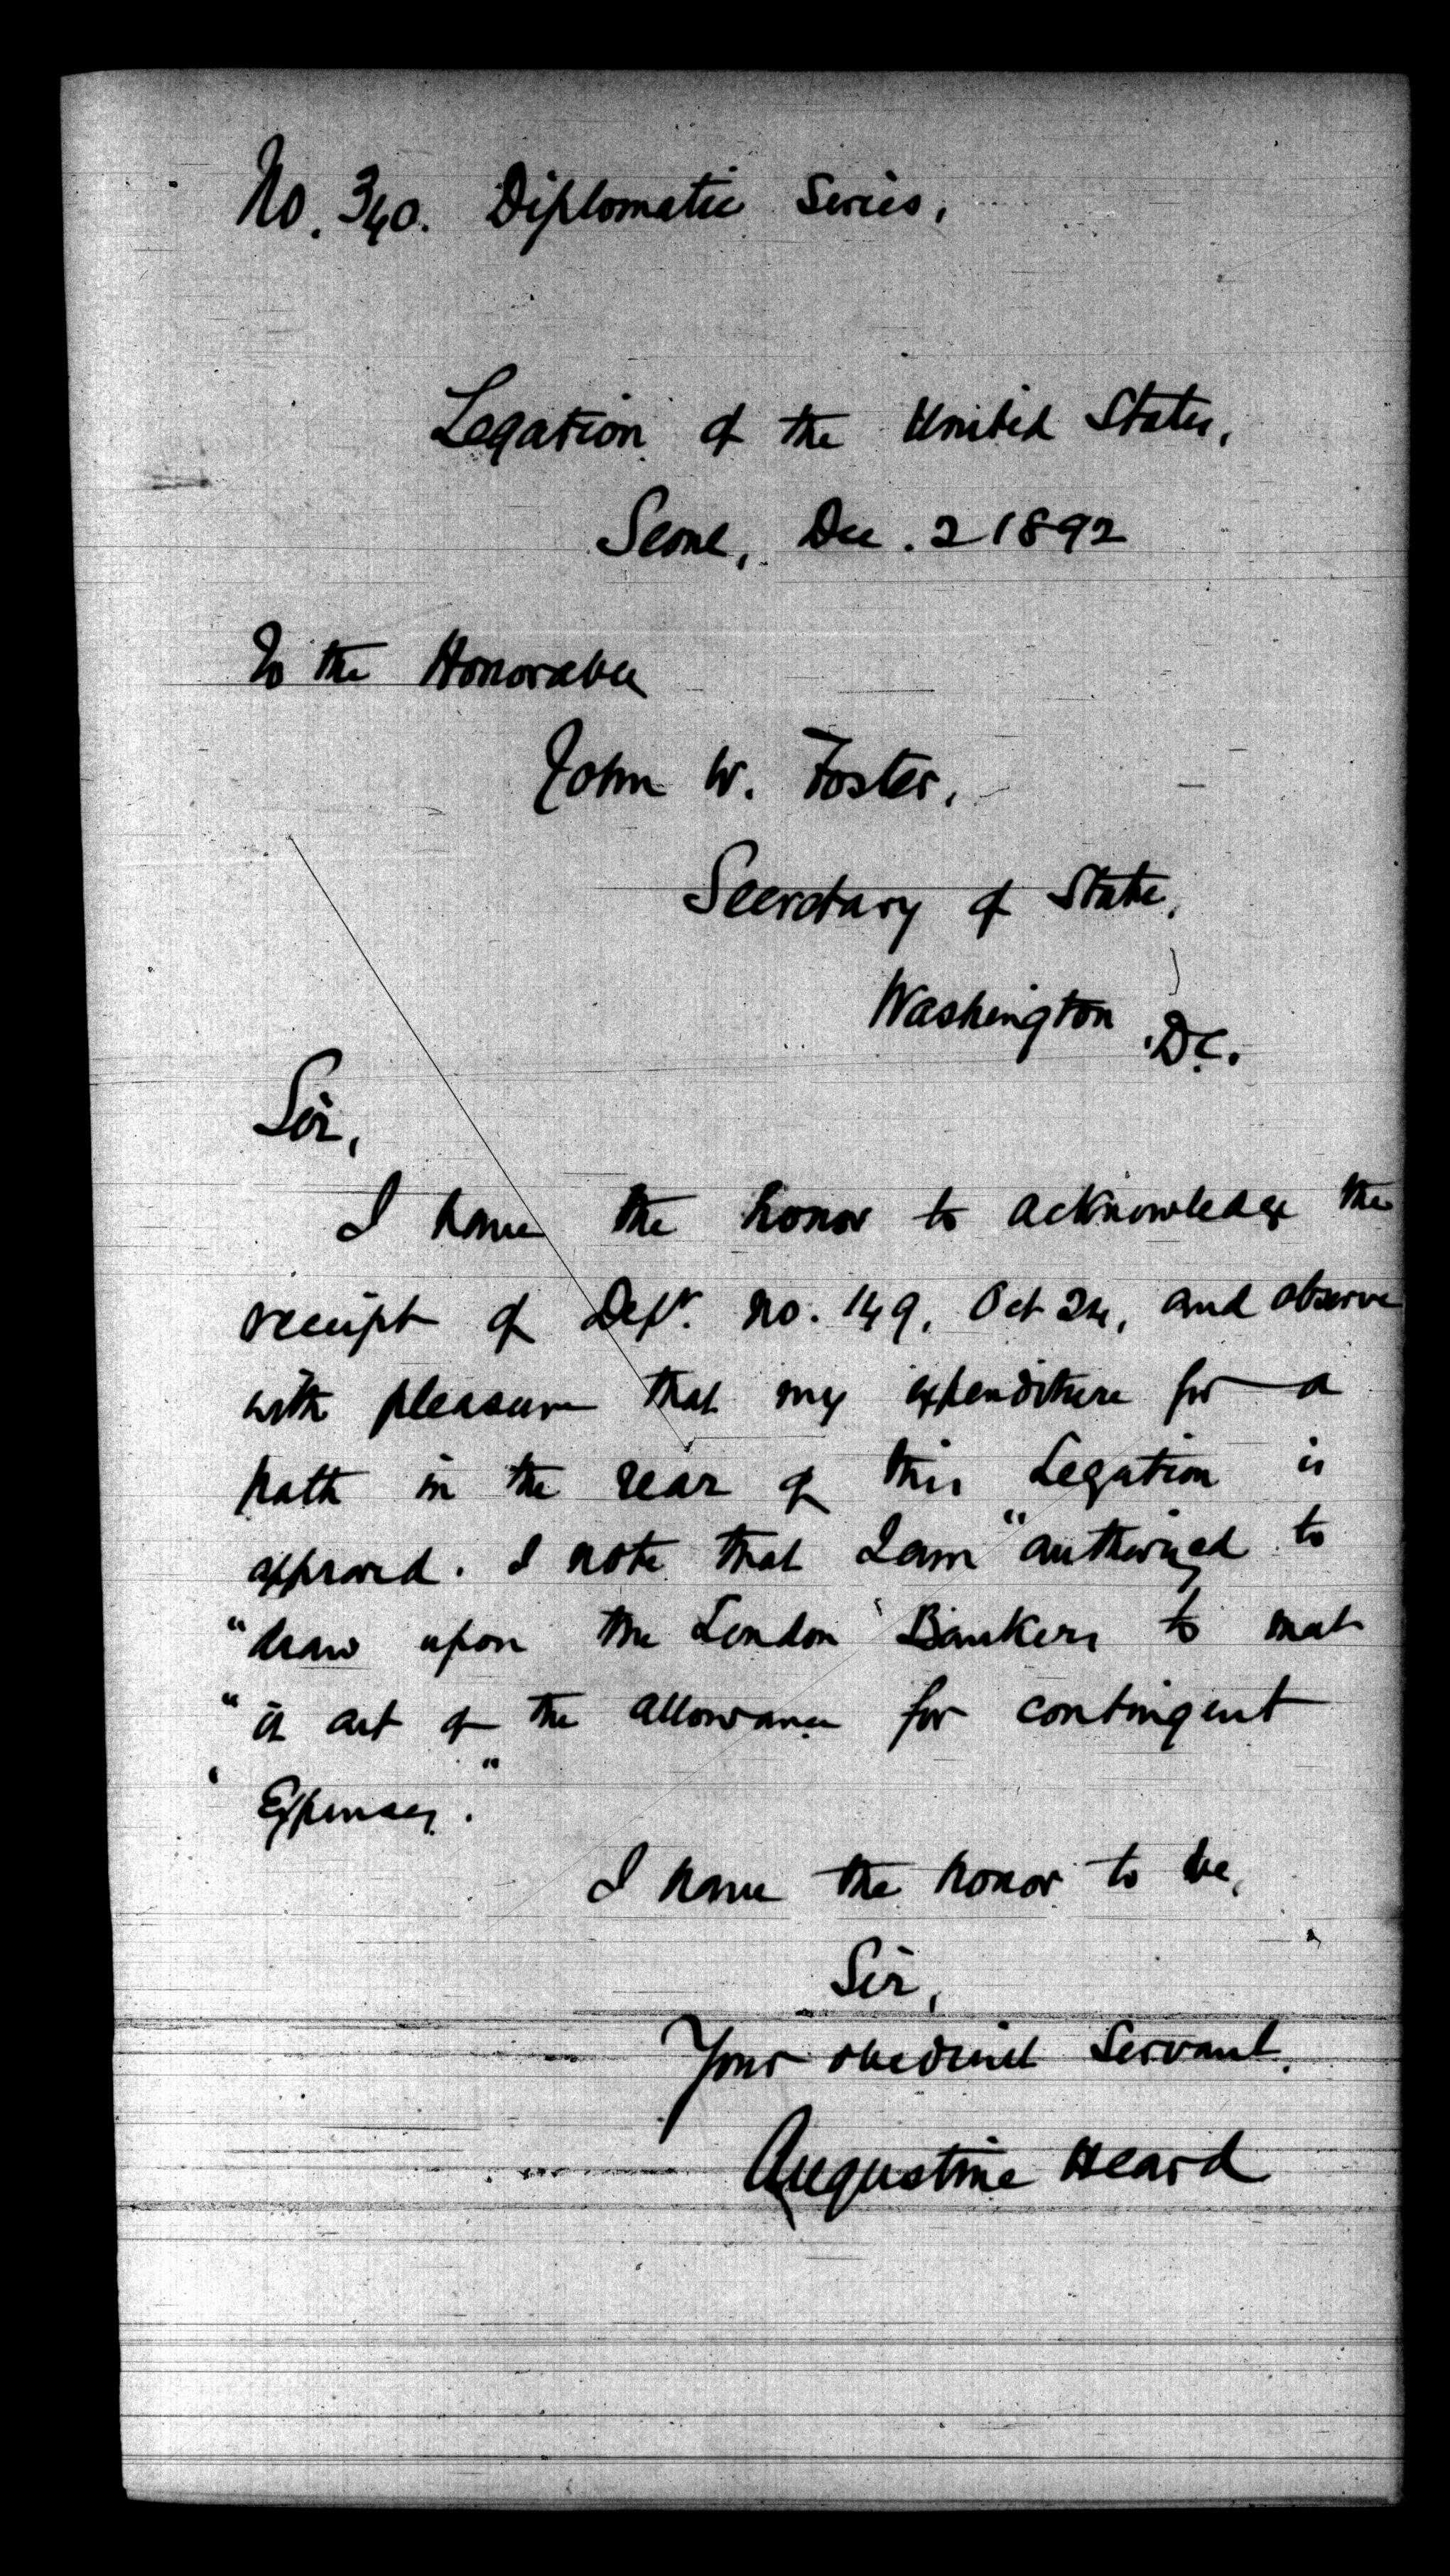 No. 340. Diplomatic Series,
Legation of the United States,
Seoul, Dec. 2 1892
To the Honorable
John W. Foster,
Secretary of State,
Washington D.C.
Sir,
I have the honor to acknowledge the
receipt of Dept. No. 149, Oct 24, and observe
with pleasure that my expenditure for a
path in the rear of this Legation is
approved. I note that I am "authorized to
"draw upon the London Bankers to meet
"it out of the allowance for contingent
"Expenses."
I have the honor to be,
Sir,
Your obedient Servant.
Augustine Heard